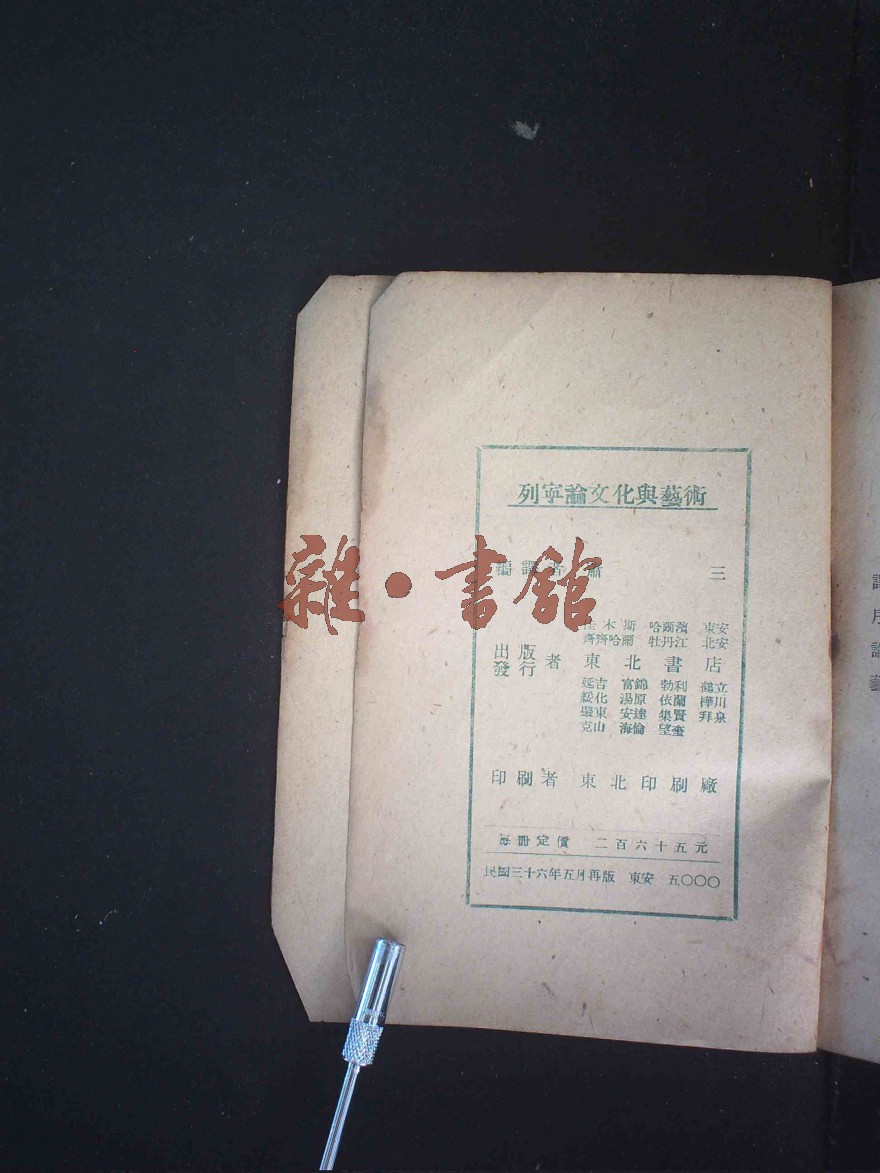 列寧論文化與藝術
編譯者 蕭 三
佳木斯 哈爾濱 東安
齊齊哈爾 牡丹江 北安
出版
發行 者 東北書店
延吉 富錦 勃利 鶴立
綏化 湯原 依蘭 樺川
肇東 安達 集賢 拜泉
克山 海倫 望奎
印刷者 東北印刷廠
每冊定價 二百六十五元
民國三十六年五月再版 東安 五〇〇〇
雜·書館
譯序